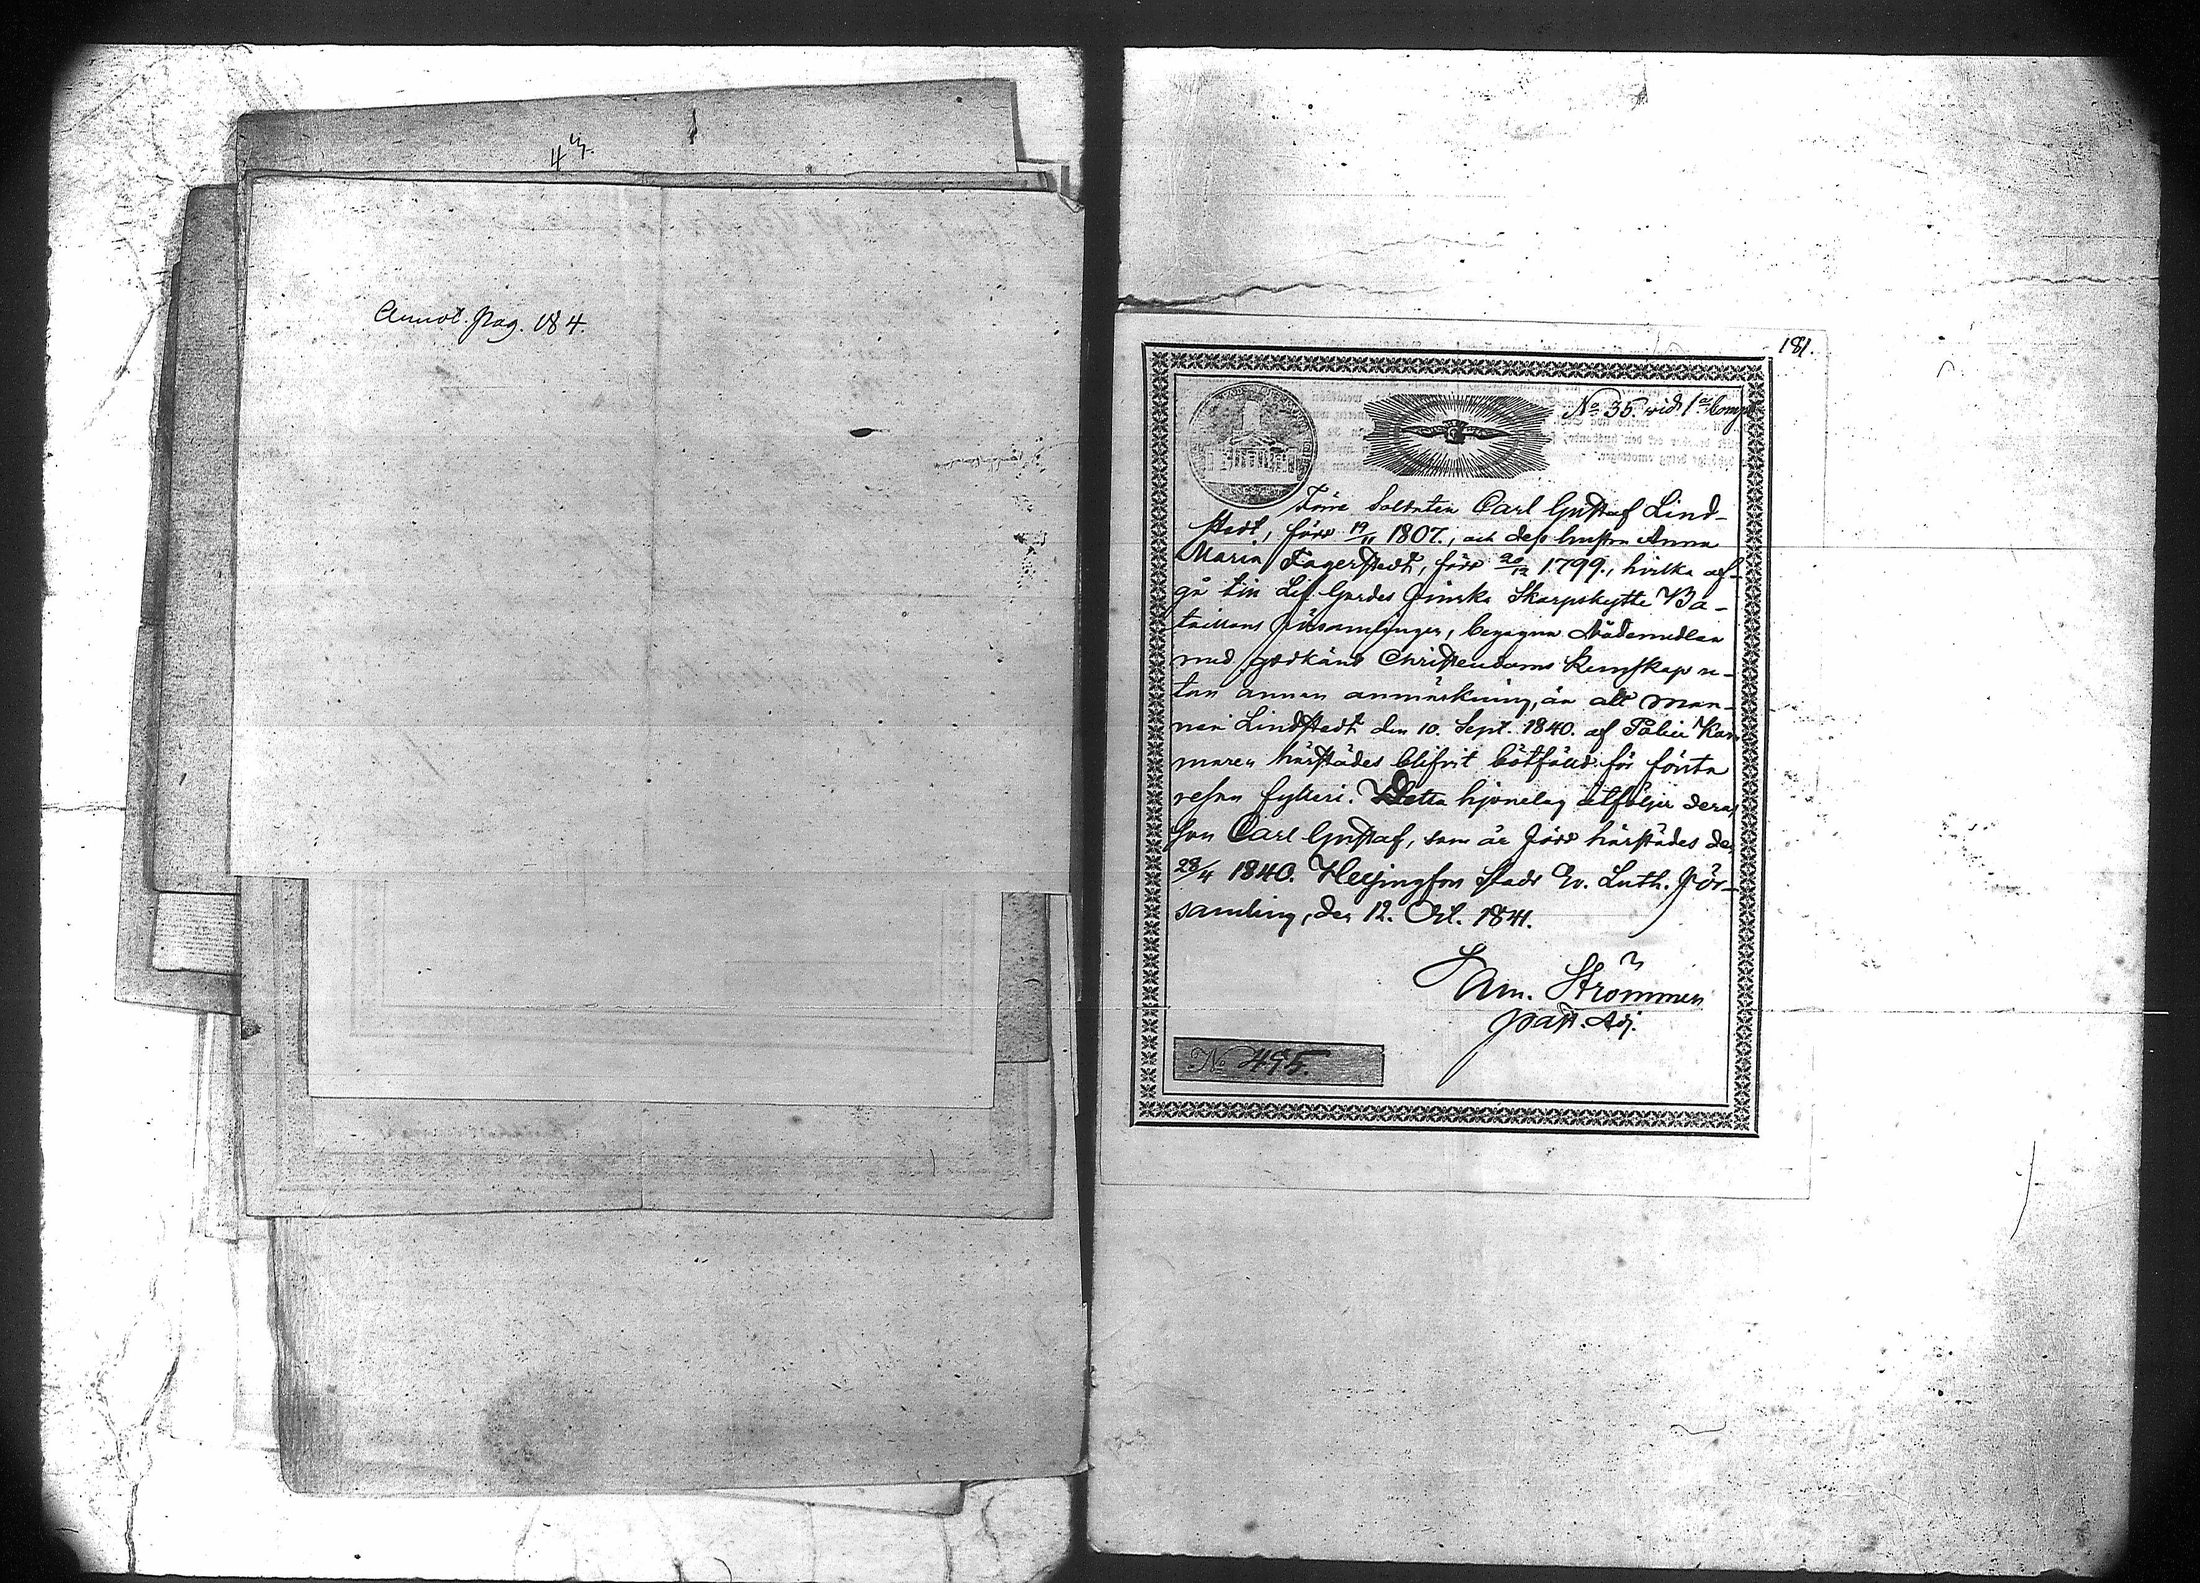 43.
Annot. Pag. 184.
181.
No 35. vid 1a Comp.
Förre Soldaten Carl Gustaf Lind-
stedt, född 19/11 1807., och dess hustru Anna
Maria Fagerstedt, född 20/12 1799., hvilka af-
gå till Lif Gardes Finska Skarpskytte Ba-
taillons Församlingen, begagna Nådemedlen
med godkänd Christendoms kunskap u-
tan annan anmärkning, än att man-
nen Lindstedt den 10. Sept. 1840. af Police Kam
maren härstädes blifvit bötfälld för första
resan fylleri. Detta hjonelag åtföljer deras
son Carl Gustaf, som är född härstädes den
28/4 1840. Helsingfors Stads Ev. Luth. För-
samling, den 12. Oct. 1841.
Strömmer
Past. Adj.
No 495.